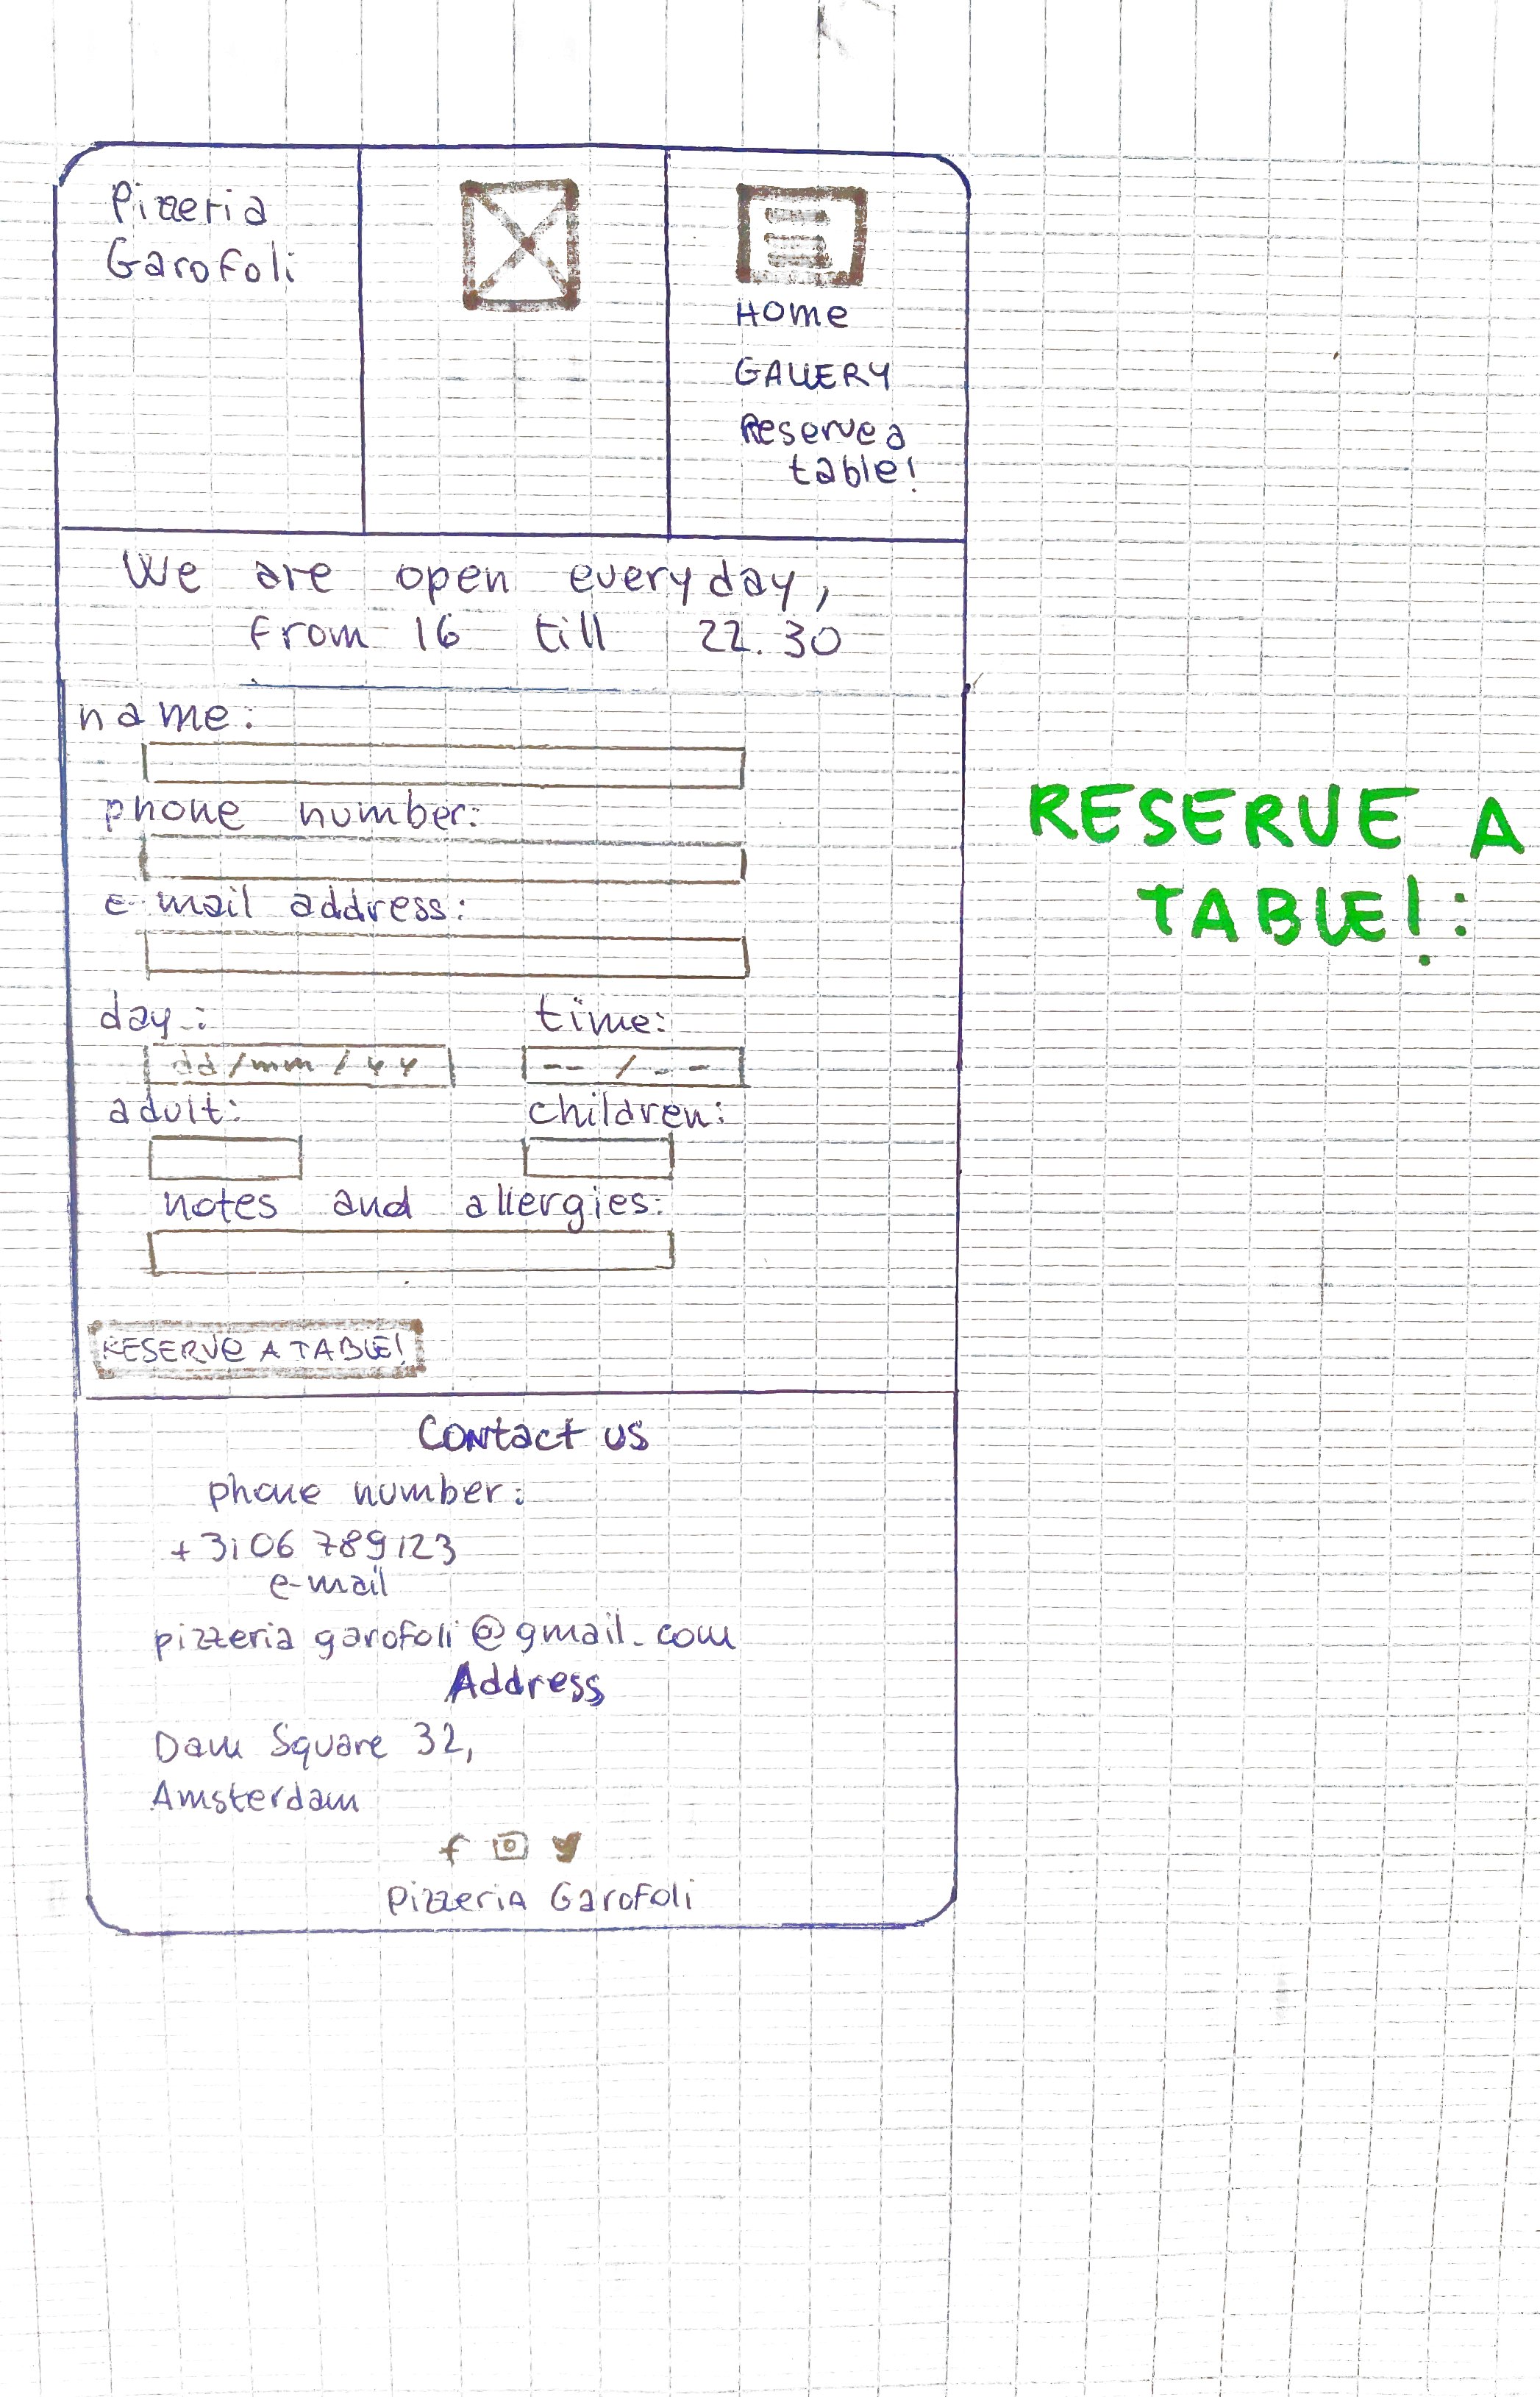 Pizzeria
Garofoli
Home
GALLERY
Reserve a
table!
We are open everyday,
from 16 till 22.30
name:
phone number:
e-mail address:
RESERVE A
TABLE!:
day:
time:
dd/mm/yy
-- / --
adult:
children:
notes and allergies:
RESERVE A TABLE!
Contact us
phone number:
+3106 789123
e-mail
pizzeria garofoli@gmail.com
Address
Dam Square 32,
Amsterdam
Pizzeria Garofoli